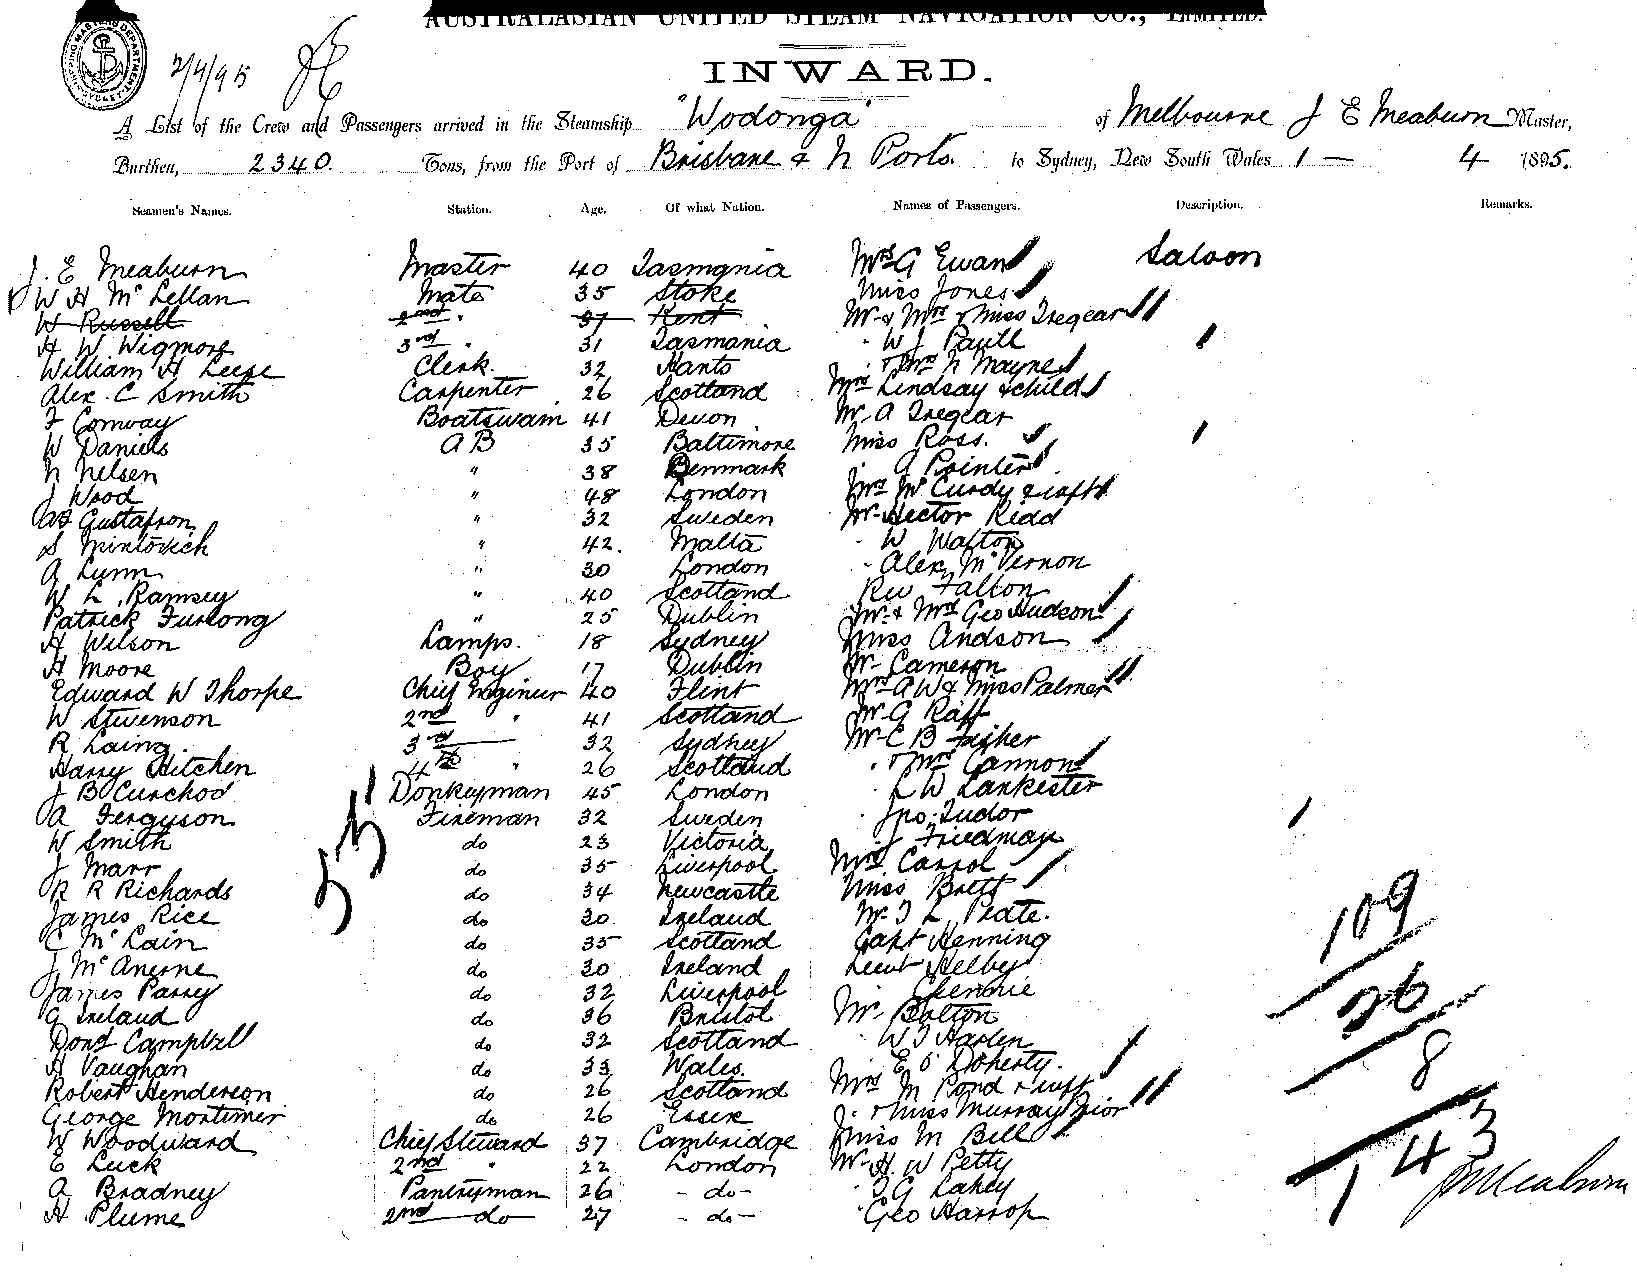 AUSTRALASIAN UNITED STEAM NAVIGATION CO., LIMITED.
2/4/95
INWARD.
A List of the Crew and Passengers arrived in the Steamship "Wodonga" of Melbourne J E Meaburn Master,
Burthen, 2340. Tons, from the Port of Brisbane & N Ports. to Sydney, New South Wales 1 — 4 1895.
Seamen's Names. Station. Age. Of what Nation. Names of Passengers. Description. Remarks.
J. E Meaburn Master 40 Tasmania Mrs G Ewan Saloon
W H McLellan Mate 35 Stoke Miss Jones
W Russell 2nd " 37 Kent Mr & Mrs & Miss Tregear
H W Wigmore 3rd " 31 Tasmania " W J Paull
William H Leese Clerk 32 Hants " & Mrs N Mayne
Alex. C Smith Carpenter 26 Scotland Mrs Lindsay & child
F Conway Boatswain 41 Devon Mr A Tregear
W Daniels A B 35 Baltimore Miss Ross.
N Nelsen " 38 Denmark " A Pointer
J Wood " 48 London Mrs McCurdy & inft
Gustafson " 32 Sweden Mr Hector Kidd
S Mintovich " 42. Malta " W Walton
A Lynn " 30 London " Alex McVernon
W L Ramsey " 40 Scotland Rev Falton
Patrick Furlong " 25 Dublin Mr & Mrs Geo Hudson
H Wilson Lamps. 18 Sydney Miss Andson
H Moore Boy 17 Dublin Mr Cameron
Edward W Thorpe Chief Engineer 40 Flint Mrs A W & Miss Palmer
W Stevenson 2nd " 41 Scotland Mr G Raff
R Laing 3rd 32 Sydney Mr C B Fisher
Harry Hitchen 4th " 26 Scotland " & Mrs Cannon
J B Curchod Donkeyman 45 London " L W Lankester
A Ferguson Fireman 32 Sweden " Jno Tudor
W Smith do 23 Victoria " J Friedman
J Marr do 35 Liverpool Mrs Carrol
R R Richards do 34 Newcastle Miss Brett
James Rice do 30 Ireland Mr T L Peate.
C McLain do 35 Scotland Capt Henning
J McAnerne do 30 Ireland Lieut Helby
James Parry do 32 Liverpool " Glennie
G Ireland do 36 Bristol Mr Bolton
Dond Campbell do 32 Scotland " W J Harlen
H Vaughan do 33 Wales. " E O'Doherty.
Robert Henderson do 26 Scotland Mrs M Pond & inft
George Mortimer do 26 Essex " & Miss Murray Prior
W Woodward Chief Steward 37 Cambridge Miss M Bell
E Luck 2nd " 22 London Mr H W Petty
A Bradney Pantryman 26 - do - " T G Lahey
H Plume 2nd do 27 - do - " Geo Harrop
53
109
26
8
143
J E Meaburn